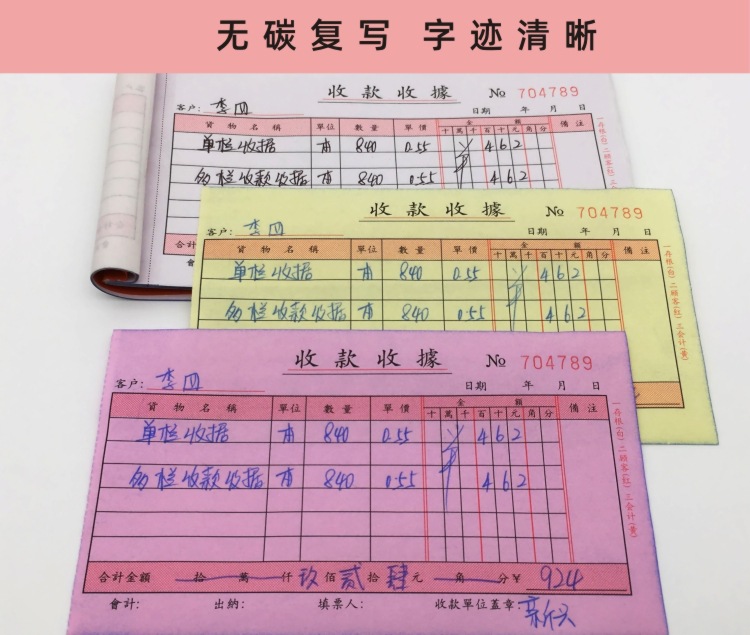 无碳复写 字迹清晰
收款收據 № 704789
客户: 李四 日期 年 月 日
貨物名稱 單位 數量 單價 金額 十萬千百十元角分 備注
单栏收据 本 840 0.55 ¥ 4 6 2
多栏收款收据 本 840 0.55 4 6 2
合計
會
一存根(白)二顧客(红)三会计(黄)
收款收據 № 704789
客户: 李四 日期 年 月 日
貨物名稱 單位 數量 單價 金額 十萬千百十元角分 備注
单栏收据 本 840 0.55 ¥ 4 6 2
多栏收款收据 本 840 0.55 4 6 2
一存根(白)二顧客(红)三会计(黄)
收款收據 № 704789
客户: 李四 日期 年 月 日
貨物名稱 單位 數量 單價 金額 十萬千百十元角分 備注
单栏收据 本 840 0.55 ¥ 4 6 2
多栏收款收据 本 840 0.55 4 6 2
合計金額 拾 萬 仟 玖 佰 贰 拾 肆 元 角 分 ¥ 924
會計: 出納: 填票人: 收款單位蓋章:
一存根(白)二顧客(红)三会计(黄)